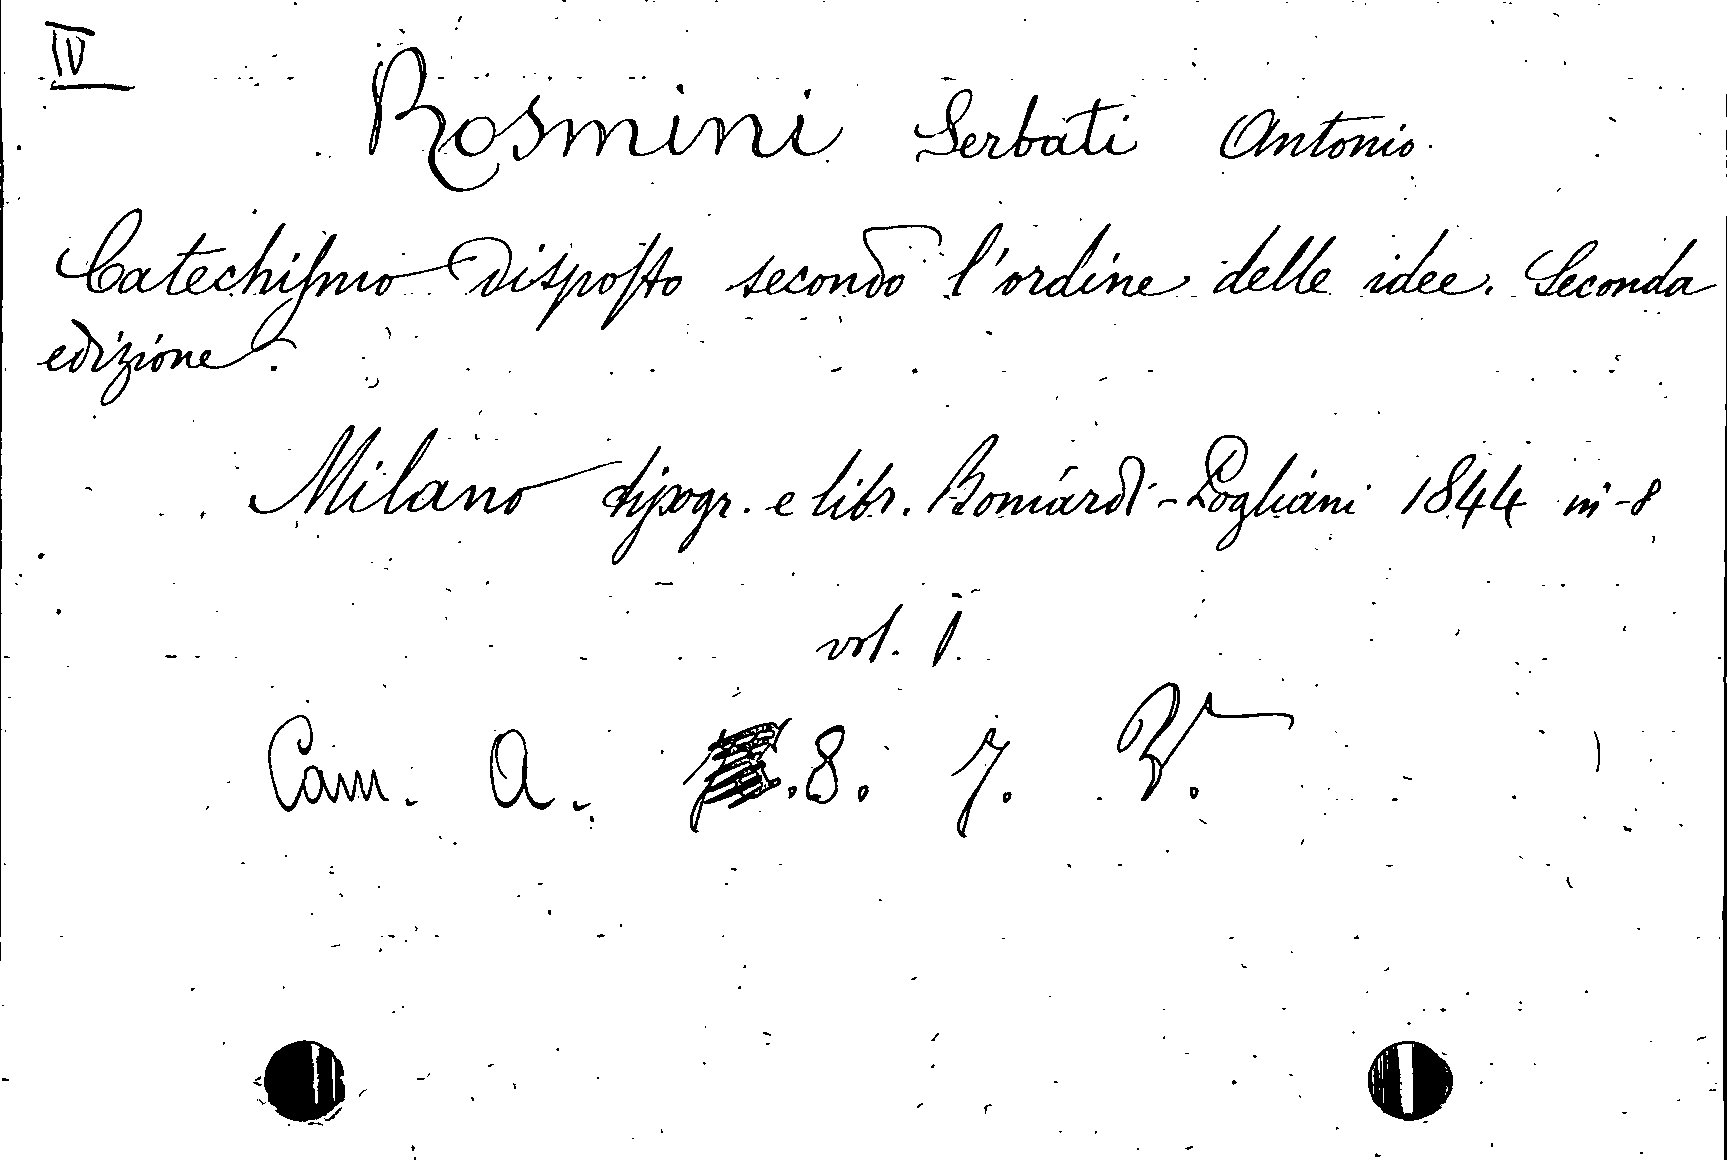 IV
Rosmini Serbati Antonio.
Catechismo disposto secondo l'ordine delle idee. Seconda
edizione.
Milano tipogr. e libr. Boniardi-Pogliani 1844 in-8
vol. 1.
Cam. A. .8. 7.